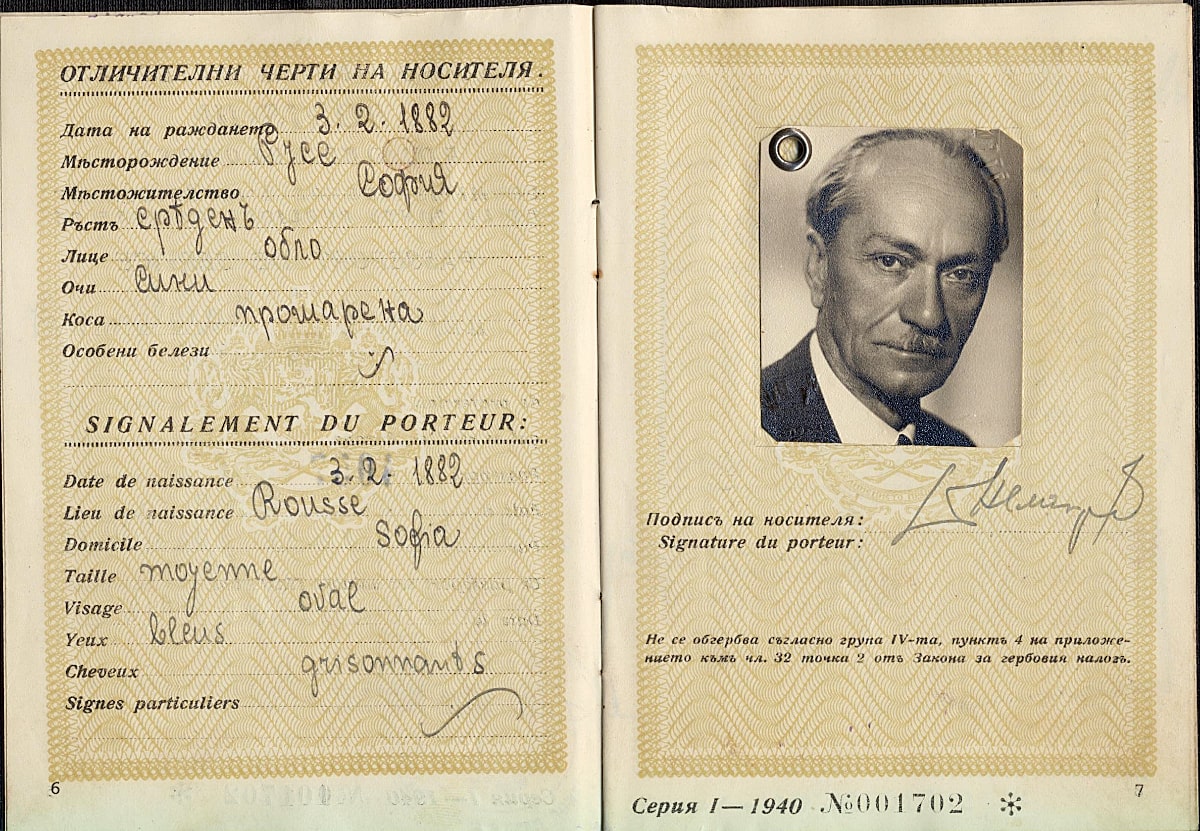 ОТЛИЧИТЕЛНИ ЧЕРТИ НА НОСИТЕЛЯ.
Дата на раждането 3. 2. 1882
Мѣсторождение Русе
Мѣстожителство София
Ръстъ срѣденъ
Лице обло
Очи сини
Коса прошарена
Особени белези
SIGNALEMENT DU PORTEUR:
Date de naissance 3. 2. 1882
Lieu de naissance Rousse
Domicile Sofia
Taille moyenne
Visage oval
Yeux bleus
Cheveux grisonnants
Signes particuliers
6
Подписъ на носителя:
Signature du porteur:
Не се обгербва съгласно група IV-та, пунктъ 4 на приложе-
нието къмъ чл. 32 точка 2 отъ Закона за гербовия налогъ.
7
Серия I—1940 №001702 *